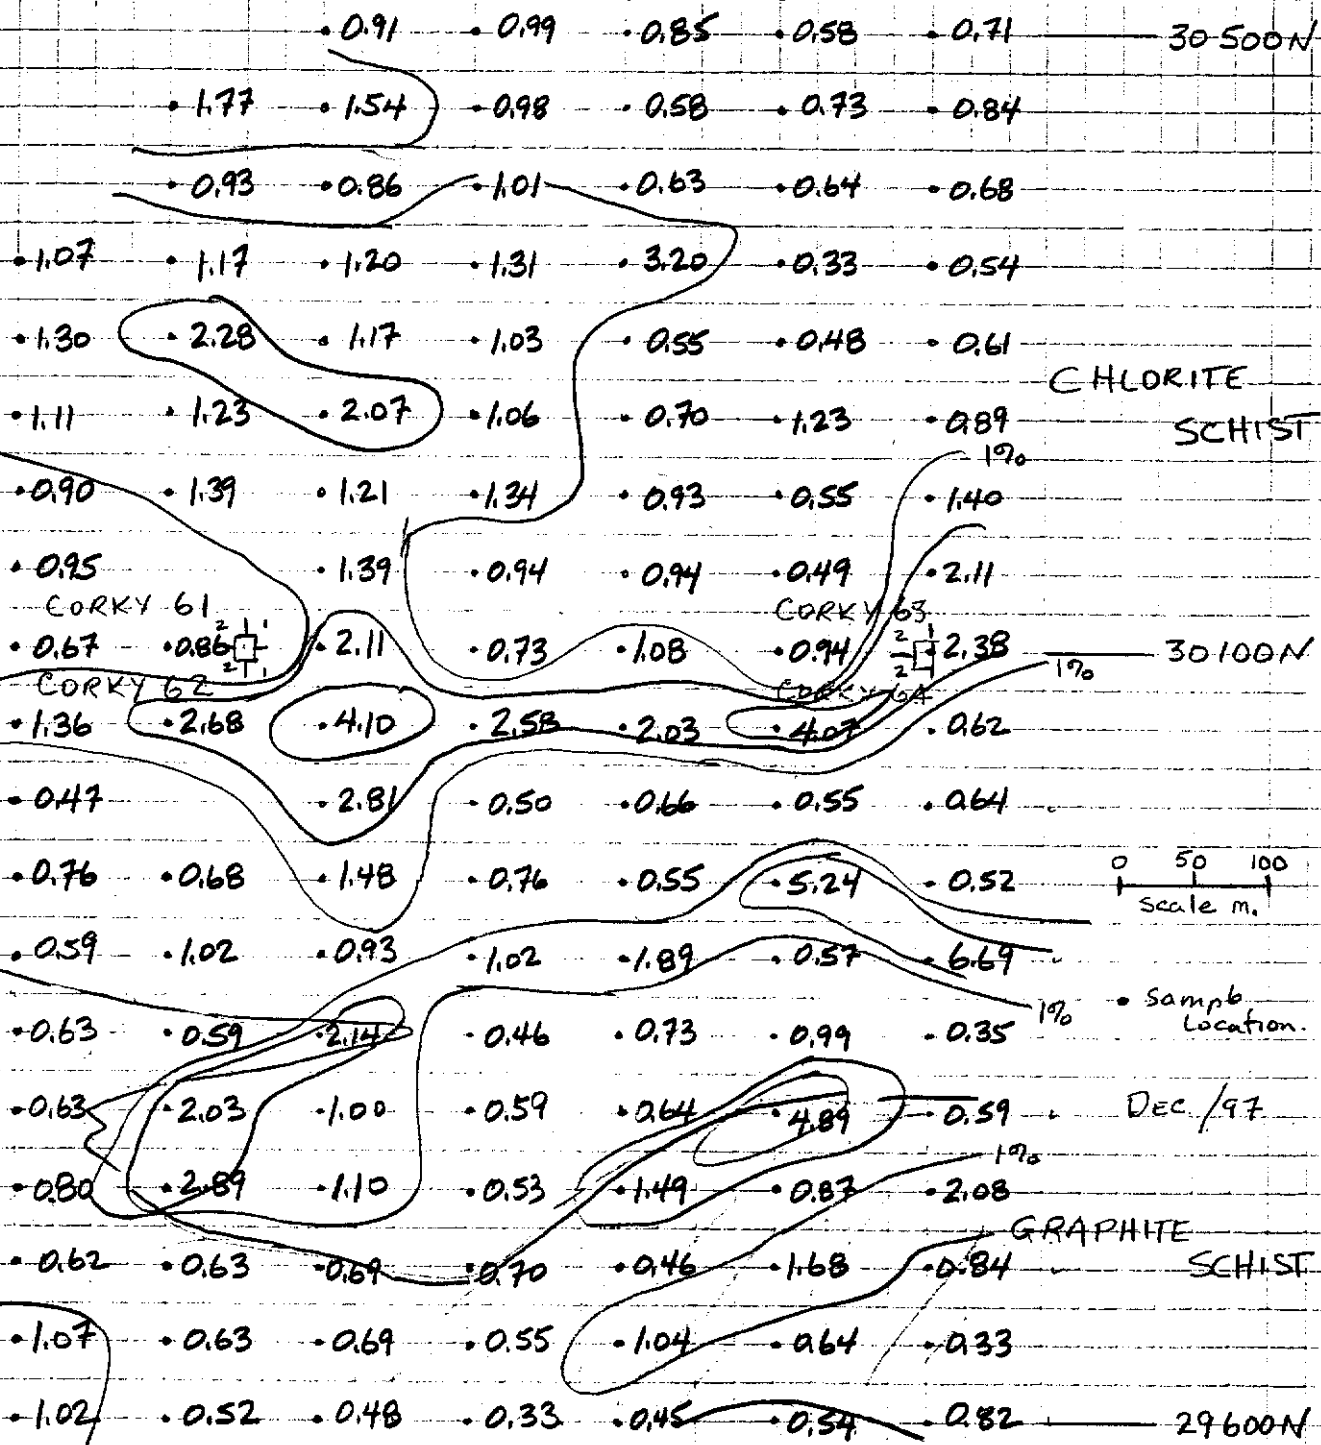 0.91 0.99 0.85 0.58 0.71 30500N
1.77 1.54 0.98 0.58 0.73 0.84
0.93 0.86 1.01 0.63 0.64 0.68
1.07 1.17 1.20 1.31 3.20 0.33 0.54
1.30 2.28 1.17 1.03 0.55 0.48 0.61
CHLORITE
1.11 1.23 2.07 1.06 0.70 1.23 0.89
SCHIST
1%
0.90 1.39 1.21 1.34 0.93 0.55 1.40
0.95 1.39 0.94 0.94 0.49 2.11
CORKY 61 CORKY 63
2 1 2 1
0.67 0.86 2.11 0.73 1.08 0.94 2.38 30100N
2 1 2
1%
CORKY 62 CORKY 64
1.36 2.68 4.10 2.58 2.03 4.07 0.62
0.47 2.81 0.50 0.66 0.55 0.64
0 50 100
0.76 0.68 1.48 0.76 0.55 5.24 0.52
Scale m.
0.59 1.02 0.93 1.02 1.89 0.57 6.69
1% Sample
Location.
0.63 0.59 2.14 0.46 0.73 0.99 0.35
0.63 2.03 1.00 0.59 0.64 4.89 0.59 DEC/97
1%
0.80 2.89 1.10 0.53 1.49 0.87 2.08
GRAPHITE
0.62 0.63 0.69 0.70 0.46 1.68 0.84 SCHIST
1.07 0.63 0.69 0.55 1.04 0.64 0.33
1.02 0.52 0.48 0.33 0.45 0.54 0.82 29600N